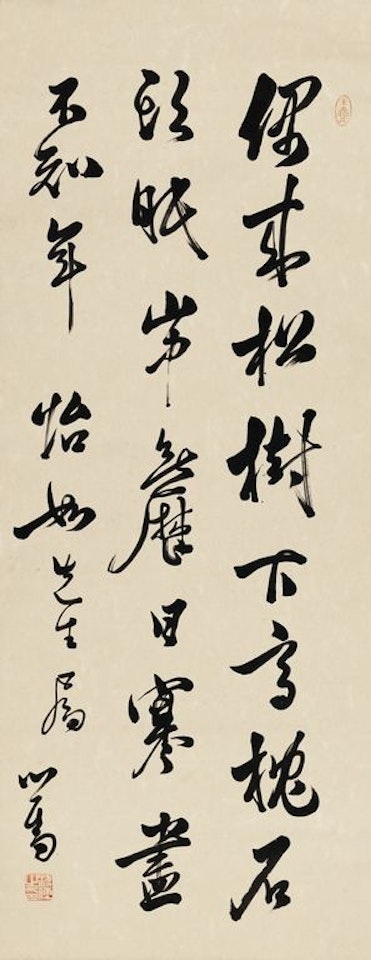 偶來松樹下高枕石
頭眠山中無曆日寒盡
不知年 怡如先生屬 心畬